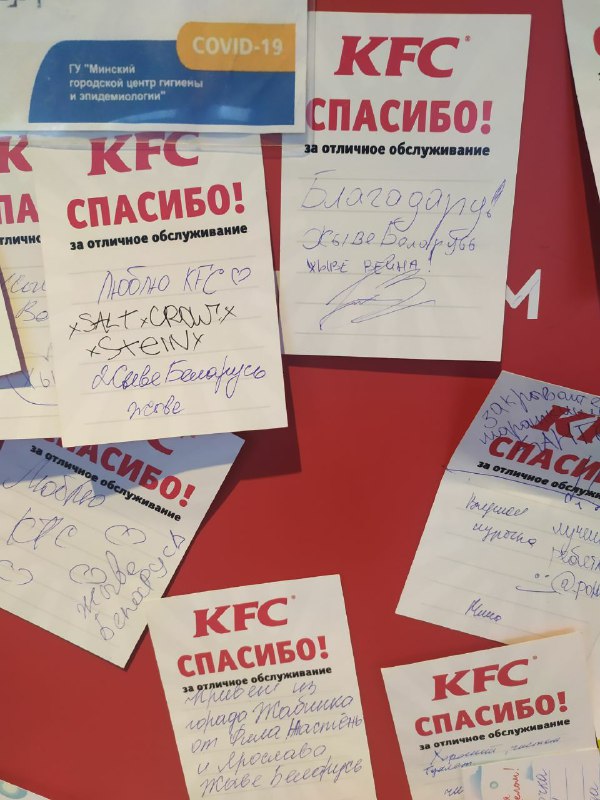 COVID-19
ГУ "Минский
городской центр гигиены
и эпидемиологии"
KFC
СПАСИБО!
за отличное обслуживание
Благодарую!
Жыве Беларусь
ЖЫВЕ ВЕЧНА!
М
KFC
СПАСИБО!
за отличное обслуживание
Люблю KFC ♡
xSALTxCROWNx
xSTEINx
Жыве Беларусь
жыве
СПАСИБО!
за отличное обслуживание
Люблю
KFC ♡
♡ ♡ Жыве
Беларусь
СПАСИБО!
за отличное обслуживание
Вкусная
курочка
KFC
СПАСИБО!
за отличное обслуживание
Привет из
города Жабинка
от Фила Настень
и Ярослава
Жыве Беларусь
KFC
СПАСИБО!
за отличное обслуживание
туалет